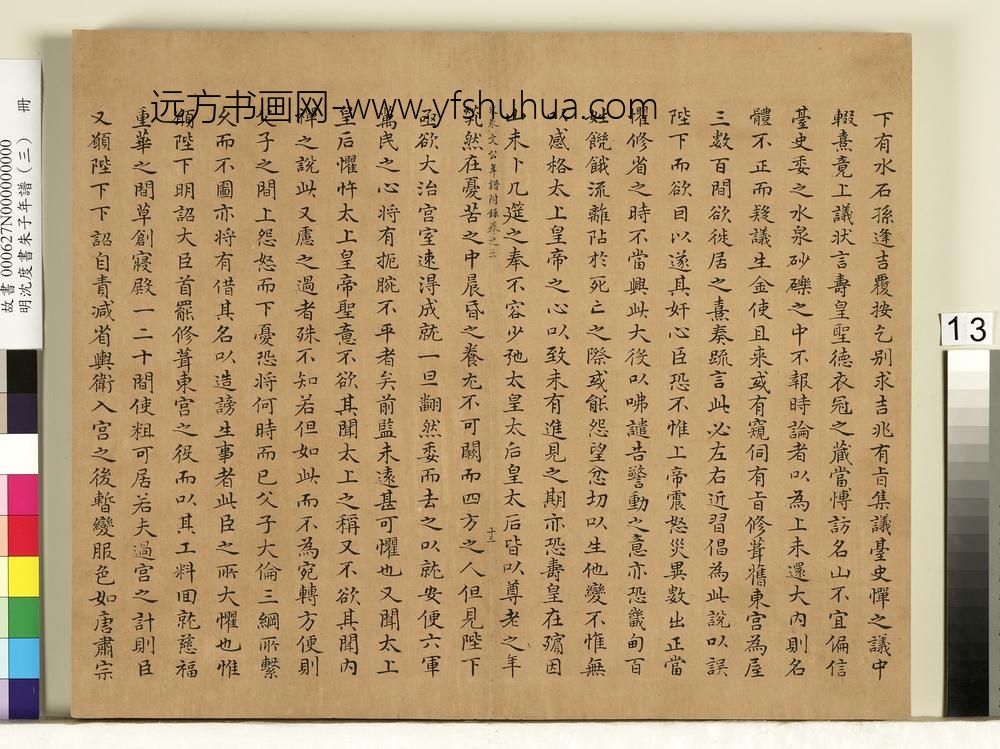 下有水石孫逢吉覆按乞别求吉兆有旨集議臺史憚之議中
輟熹竟上議狀言壽皇聖德衣冠之藏當博訪名山不宜偏信
臺史委之水泉砂礫之中不報時論者以為上未還大內則名
體不正而疑議生金使且来或有窺伺有旨修葺舊東宮為屋
三數百間欲徙居之熹奏疏言此必左右近習倡為此說以誤
陛下而欲因以遂其奸心臣恐不惟上帝震怒災異數出正當
懼修省之時不當興此大役以咈譴告警動之意亦恐畿甸百
姓饑餓流離阽於死亡之際或能怨望忿切以生他變不惟無
以感格太上皇帝之心以致未有進見之期亦恐壽皇在殯因
山未卜几筵之奉不容少弛太皇太后皇太后皆以尊老之年
朱文公年譜附錄卷之二
十三
煢然在憂苦之中晨昏之養尤不可闕而四方之人但見陛下
亟欲大治宮室速得成就一旦翩然委而去之以就安便六軍
萬民之心將有扼腕不平者矣前監未遠甚可懼也又聞太上
皇后懼忤太上皇帝聖意不欲其聞太上之稱又不欲其聞內
禪之說此又慮之過者殊不知若但如此而不為宛轉方便則
父子之間上怨怒而下憂恐將何時而已父子大倫三綱所繫
久而不圖亦將有借其名以造謗生事者此臣之所大懼也惟
願陛下明詔大臣首罷修葺東宮之役而以其工料回就慈福
重華之間草創寢殿一二十間使粗可居若夫過宮之計則臣
又願陛下下詔自責減省輿衛入宮之後暫變服色如唐肅宗
远方书画网-www.yfshuhua.com
冊
故書 000627N000000000
明沈度書朱子年譜(三)
13